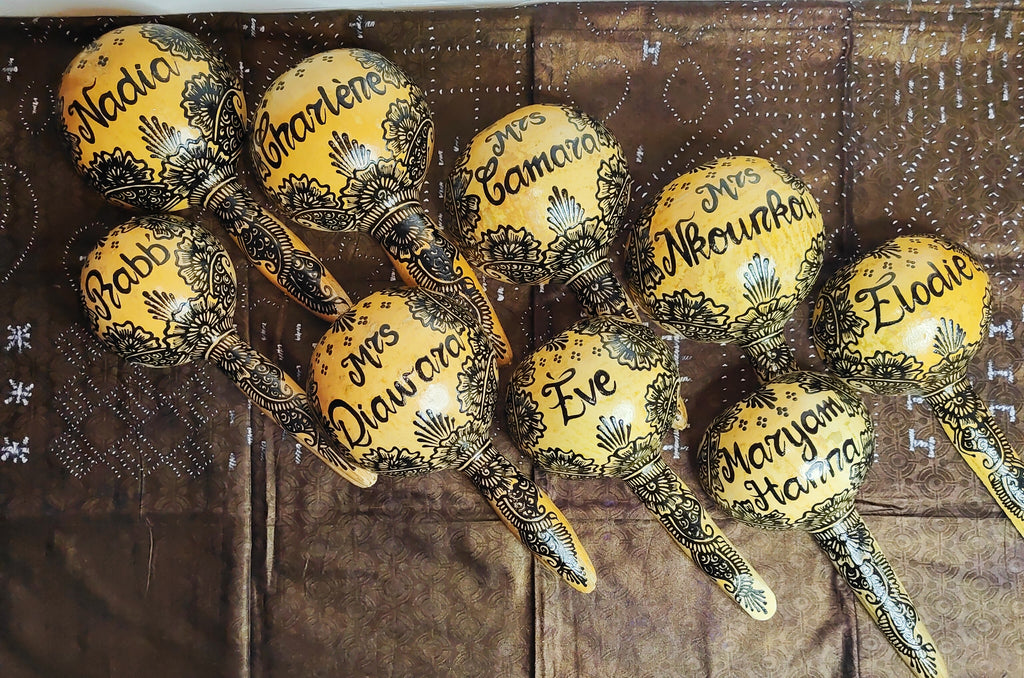 Nadia
Charlène
Mrs
Camara
Mrs
Nkounkou
Elodie
Rabb
Mrs
Diawara
Ève
Maryam
Hanna